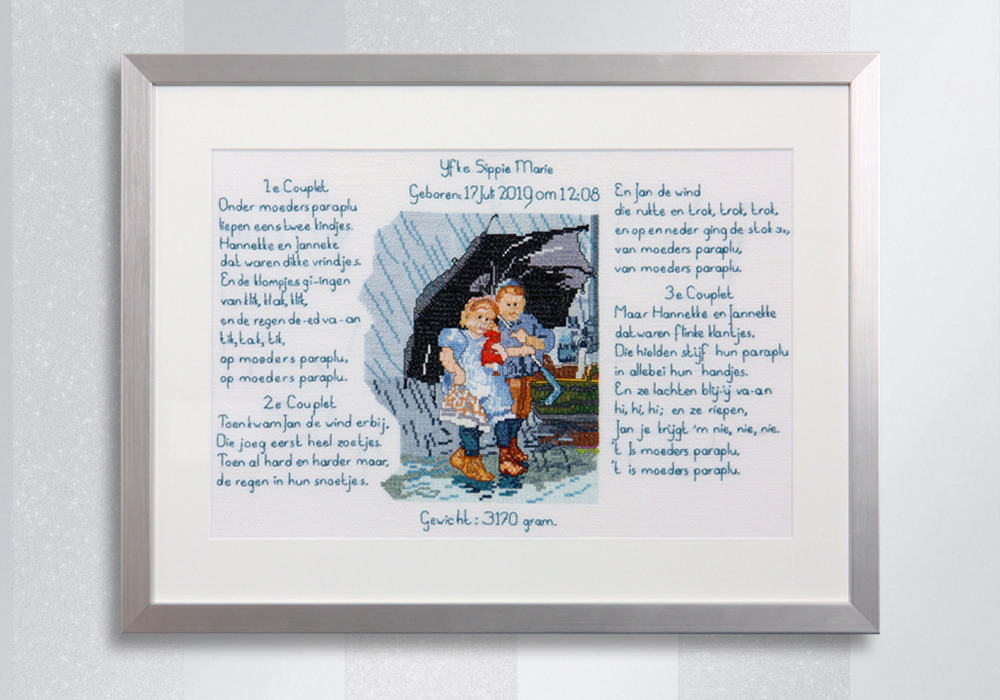 Yfke Sippie Marie
Geboren: 17 Juli 2019 om 12:08
1e Couplet
Onder moeders paraplu
liepen eens twee kindjes.
Hanneke en Janneke
dat waren dikke vrindjes.
En de klompjes gi-ingen
van klit, klak, klit,
en de regen de-ed va-an
tik, tak, tik,
op moeders paraplu,
op moeders paraplu.
2e Couplet
Toen kwam Jan de wind erbij.
Die joeg eerst heel zoetjes.
Toen al hard en harder maar,
de regen in hun snoetjes.
En Jan de wind
die rukte en trok, trok, trok,
en op en neder ging de stok 3x,
van moeders paraplu,
van moeders paraplu.
3e Couplet
Maar Hanneke en Janneke
dat waren flinke klantjes,
Die hielden stijf hun paraplu
in allebei hun handjes.
En ze lachten blij-ij va-an
hi, hi, hi; en ze riepen,
Jan je krijgt 'm nie, nie, nie.
't Is moeders paraplu,
't is moeders paraplu.
Gewicht: 3170 gram.